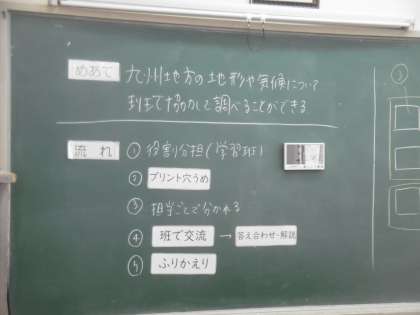 めあて 九州地方の地形や気候について
班で協力して調べることができる
流れ ① 役割分担(学習班)
② プリント穴うめ
③ 担当ごとで分かれる
④ 班で交流 → 答え合わせ・解説
⑤ ふりかえり